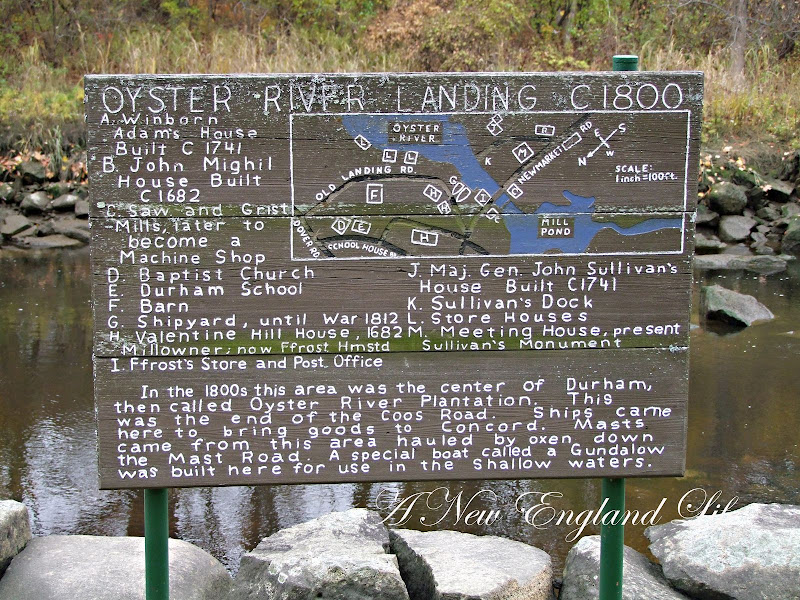 OYSTER RIVER LANDING C1800
A. Winborn
Adam's House
Built C 1741
B. John Mighil
House Built
C 1682
C. Saw and Grist
Mills, later to
become a
Machine Shop
D. Baptist Church
E. Durham School
F. Barn
G. Shipyard, until War 1812
H. Valentine Hill House, 1682
Millowner; now Ffrost Hmstd
I. Ffrost's Store and Post Office
OYSTER
RIVER
OLD LANDING RD.
NEWMARKET RD
DOVER RD.
SCHOOL HOUSE
MILL
POND
SCALE:
1 inch = 100 ft.
E
S
W
K
L
L
L
F
D
E
H
G
G
C
J. Maj. Gen. John Sullivan's
House Built C1741
K. Sullivan's Dock
L. Store Houses
M. Meeting House, present
Sullivan's Monument
In the 1800s this area was the center of Durham,
then called Oyster River Plantation. This
was the end of the Coos Road. Ships came
here to bring goods to Concord. Masts
came from this area hauled by oxen down
the Mast Road. A special boat called a Gundalow
was built here for use in the Shallow waters.
A New England Life